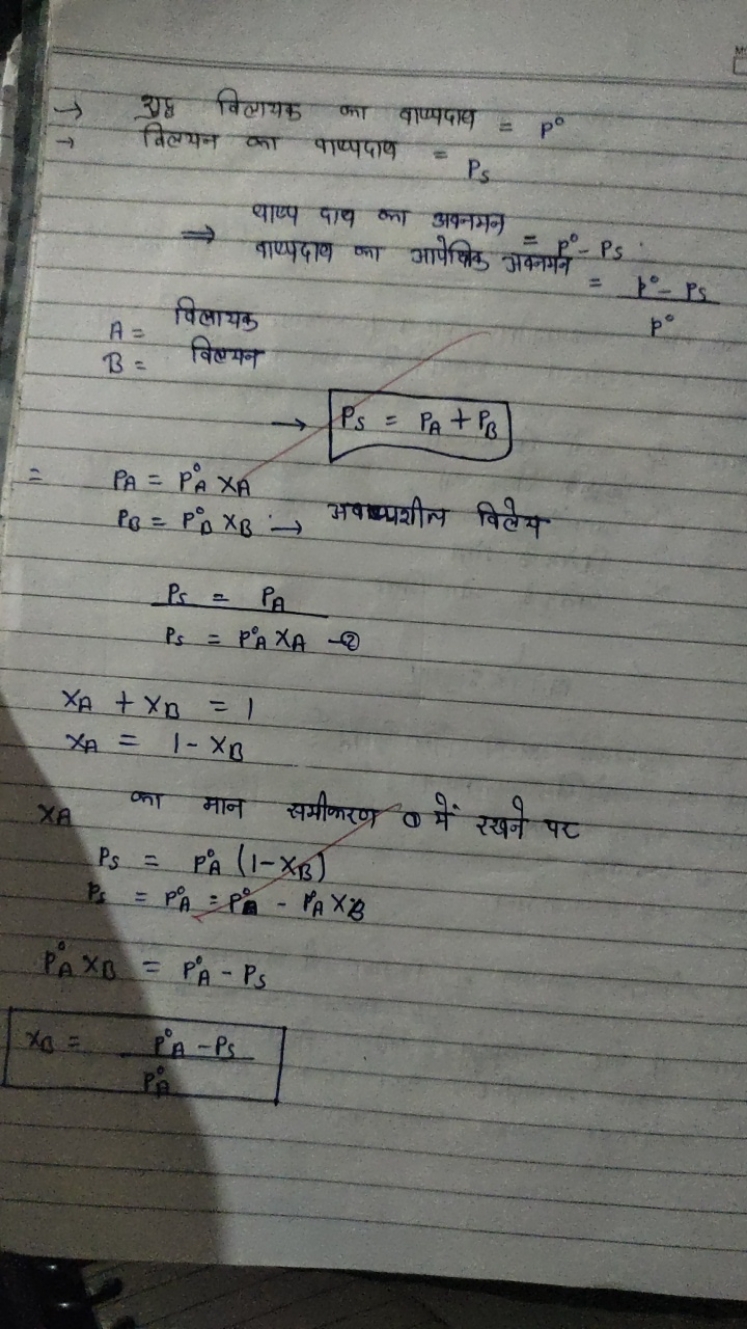 → शुद्ध विलायक का वाष्पदाब = P°
→ विलयन का वाष्पदाब = Ps
⇒ वाष्प दाब का अवनमन = P° - Ps
वाष्पदाब का आपेक्षिक अवनमन = P° - Ps / P°
A = विलायक
B = विलयन
→ Ps = PA + PB
= PA = P°A XA
PB = P°B XB → अवाष्पशील विलेय
Ps = PA
Ps = P°A XA -②
XA + XB = 1
XA = 1 - XB
XA का मान समीकरण ① में रखने पर
Ps = P°A (1 - XB)
Ps = P°A = P°A - PA XB
P°A XB = P°A - Ps
XB = P°A - Ps / P°A